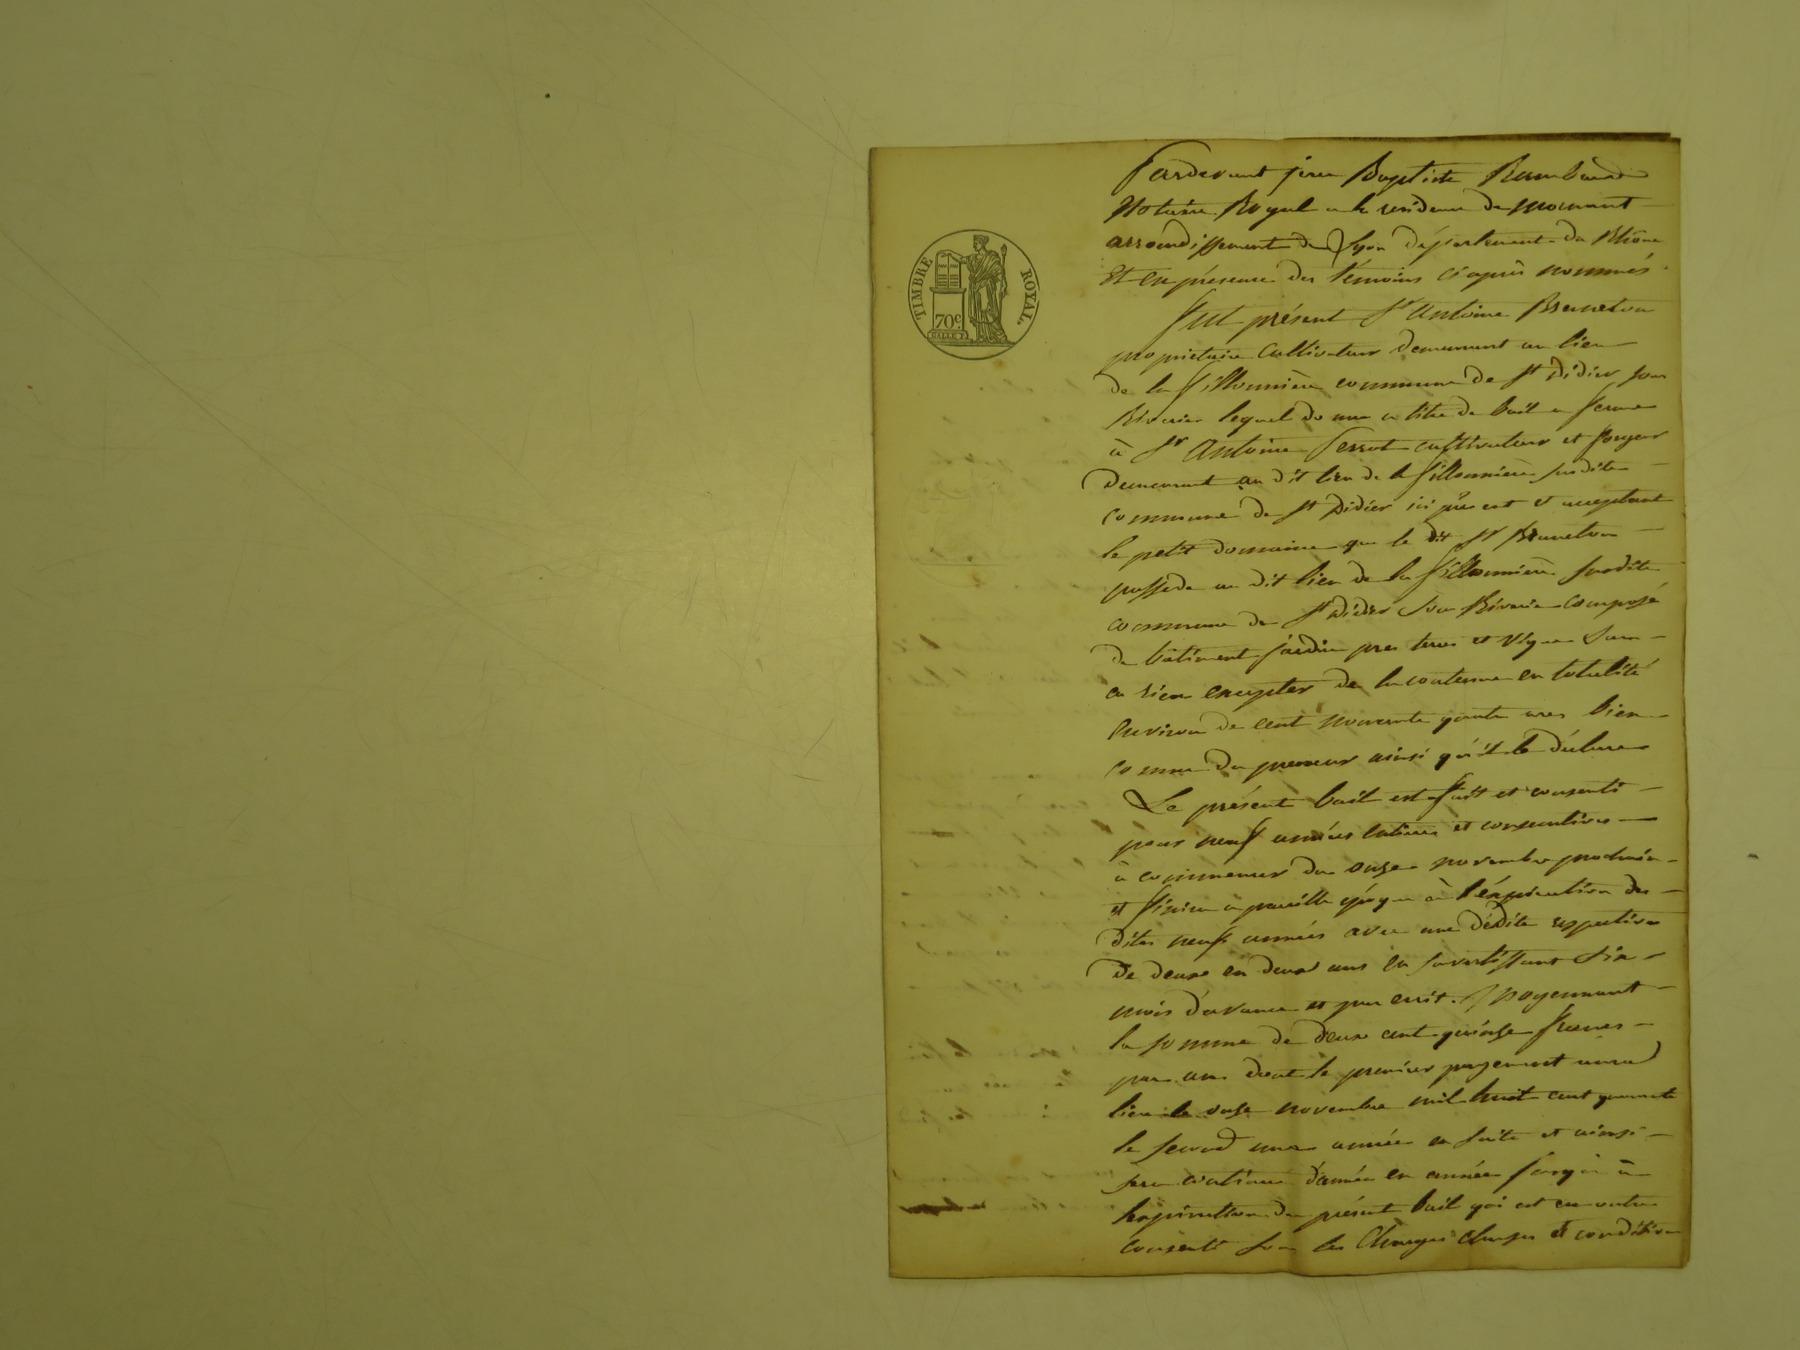 TIMBRE ROYAL.
70c.
Pardevant jean Baptiste Rambaud
Notaire Royal a la residence de Mornant
arrondissement de Lyon département du Rhône
Et en présence des témoins ci après nommés
Fut présent Sr Antoine Bruneton
proprietaire Cultivateur demeurant au lieu
de la Fillonnière commune de St Didier sous
Riverie lequel donne a titre de bail a ferme
à Sr Antoine Perrot cultivateur et
demeurant au dit lieu de la fillonnière susdite
commune de St Didier ici présent et acceptant
le petit domaine que le dit Sr Bruneton
possede au dit lieu de la Fillonnière susdite
commune de St Didier sous Riverie composé
de bâtiment jardin pres terres et Vigne Sans
en rien excepter de la contenue en totalité
environ de cent novante ares bien
connu du preneur ainsi qu'il le déclare
Le présent bail est fait et consenti
pour neuf années entieres et consecutives
à commencer du onze novembre prochain
et finir a pareille époque à l'éxpiration des
dites neuf années avec une dédite respective
de deux en deux ans en s'avertissant six
mois d'avance et par ecrit. moyennant
la somme de deux cent quinze francs
par an dont le premier payement aura
lieu le onze novembre mil huit cent quarante
le second une année en suite et ainsi
sera continué d'année en année jusqu'à
l'expiration du présent bail qui est en outre
consenti sous les Charges clauses et condition